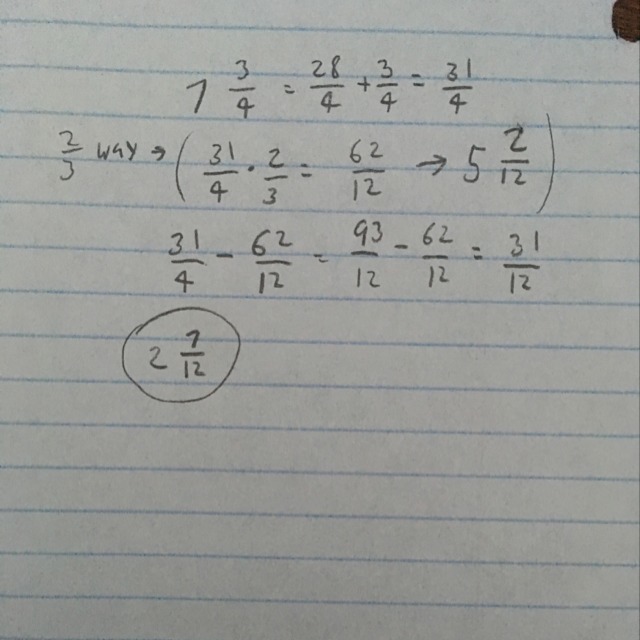 7 3/4 = 28/4 + 3/4 = 31/4
2/3 WAY → ( 31/4 · 2/3 = 62/12 → 5 2/12 )
31/4 - 62/12 = 93/12 - 62/12 = 31/12
2 7/12